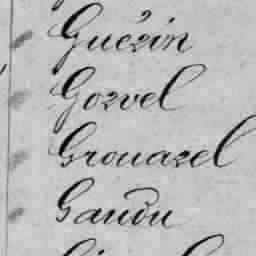 Guézin
Gorvel
Grouazel
Gaudu